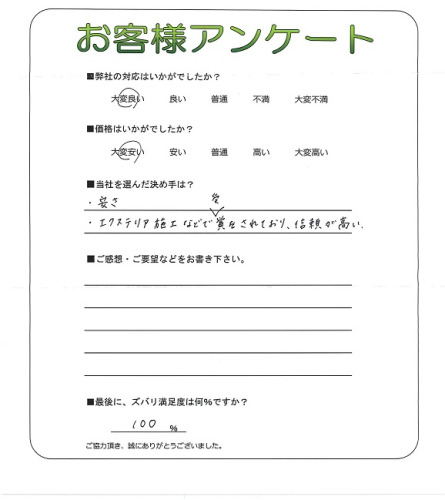 お客様アンケート
■弊社の対応はいかがでしたか？
大変良い 良い 普通 不満 大変不満
■価格はいかがでしたか？
大変安い 安い 普通 高い 大変高い
■当社を選んだ決め手は？
・安さ
・エクステリア施工などで受賞をされており、信頼が高い。
■ご感想・ご要望などをお書き下さい。
■最後に、ズバリ満足度は何%ですか？
100 %
ご協力頂き、誠にありがとうございました。